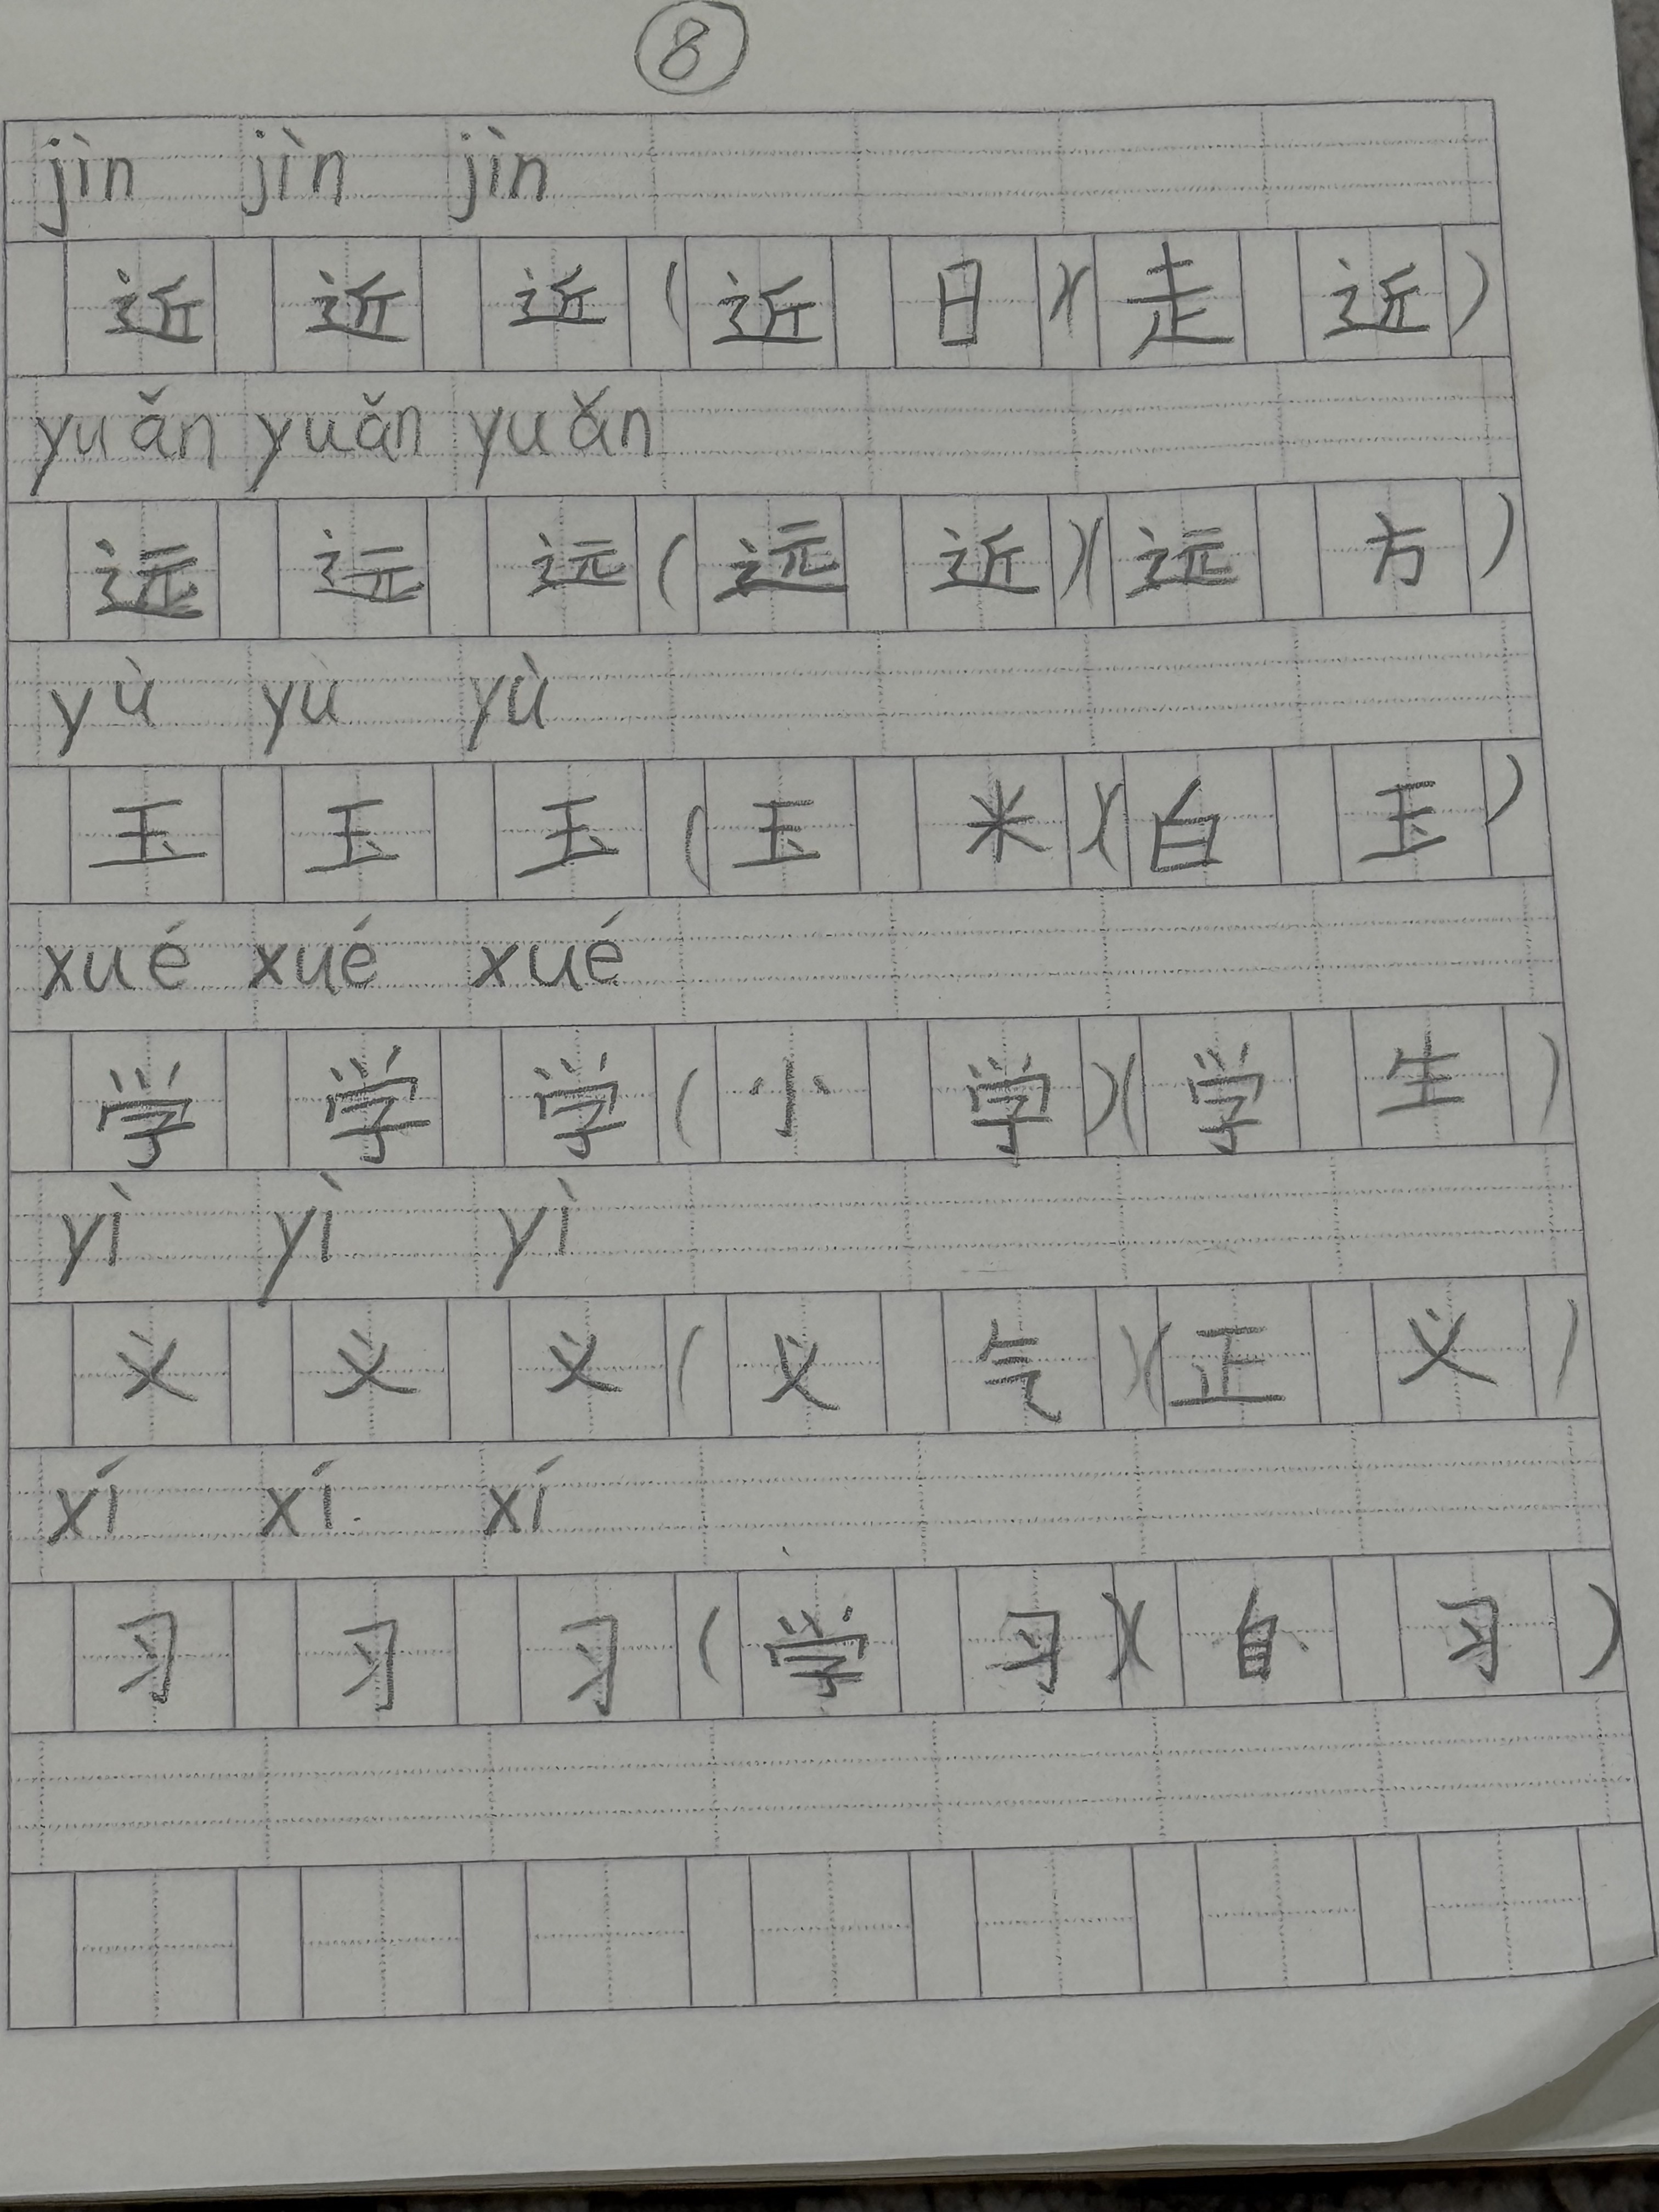 8
jìn jìn jìn
近 近 近 (近 日)(走 近)
yuǎn yuǎn yuǎn
远 远 远 (远 近)(远 方)
yù yù yù
玉 玉 玉 (玉 米)(白 玉)
xué xué xué
学 学 学 (小 学)(学 生)
yì yì yì
义 义 义 (义 气)(正 义)
xí xí xí
习 习 习 (学 习)(自 习)